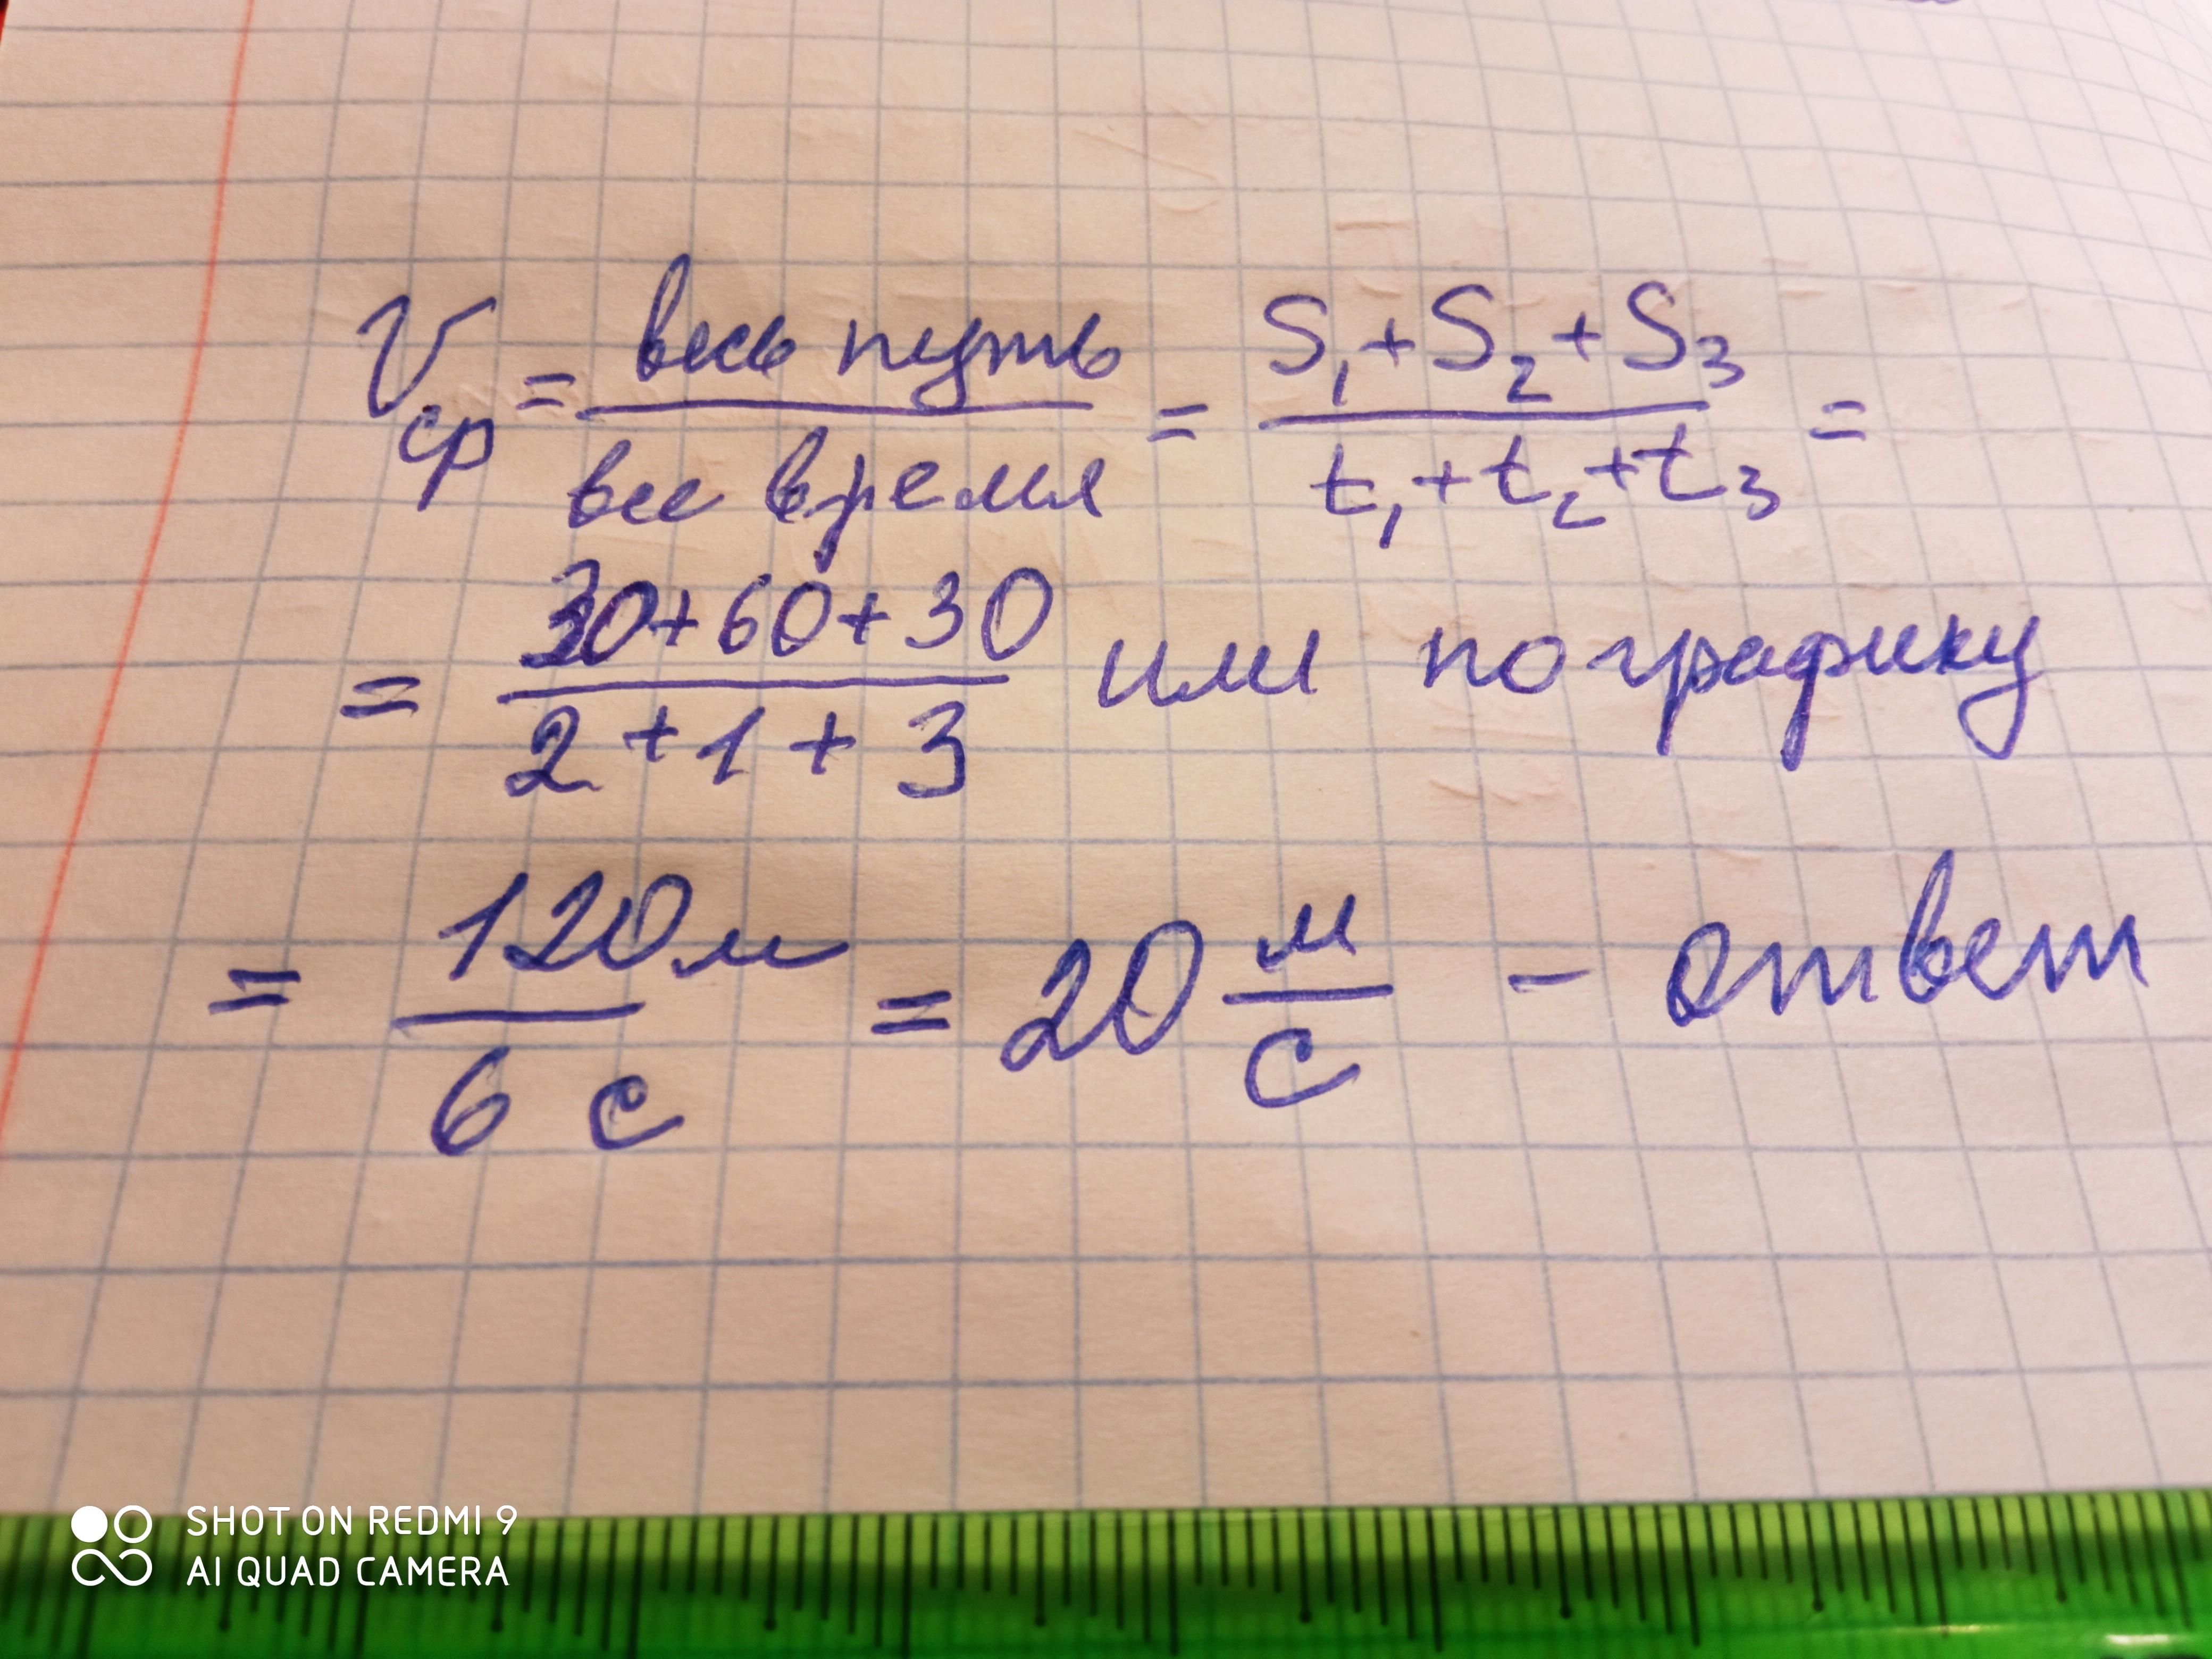 Vср = весь путь / все время = S₁+S₂+S₃ / t₁+t₂+t₃ =
= 30+60+30 / 2+1+3 или по графику
= 120м / 6 с = 20 м/с - ответ
SHOT ON REDMI 9
AI QUAD CAMERA